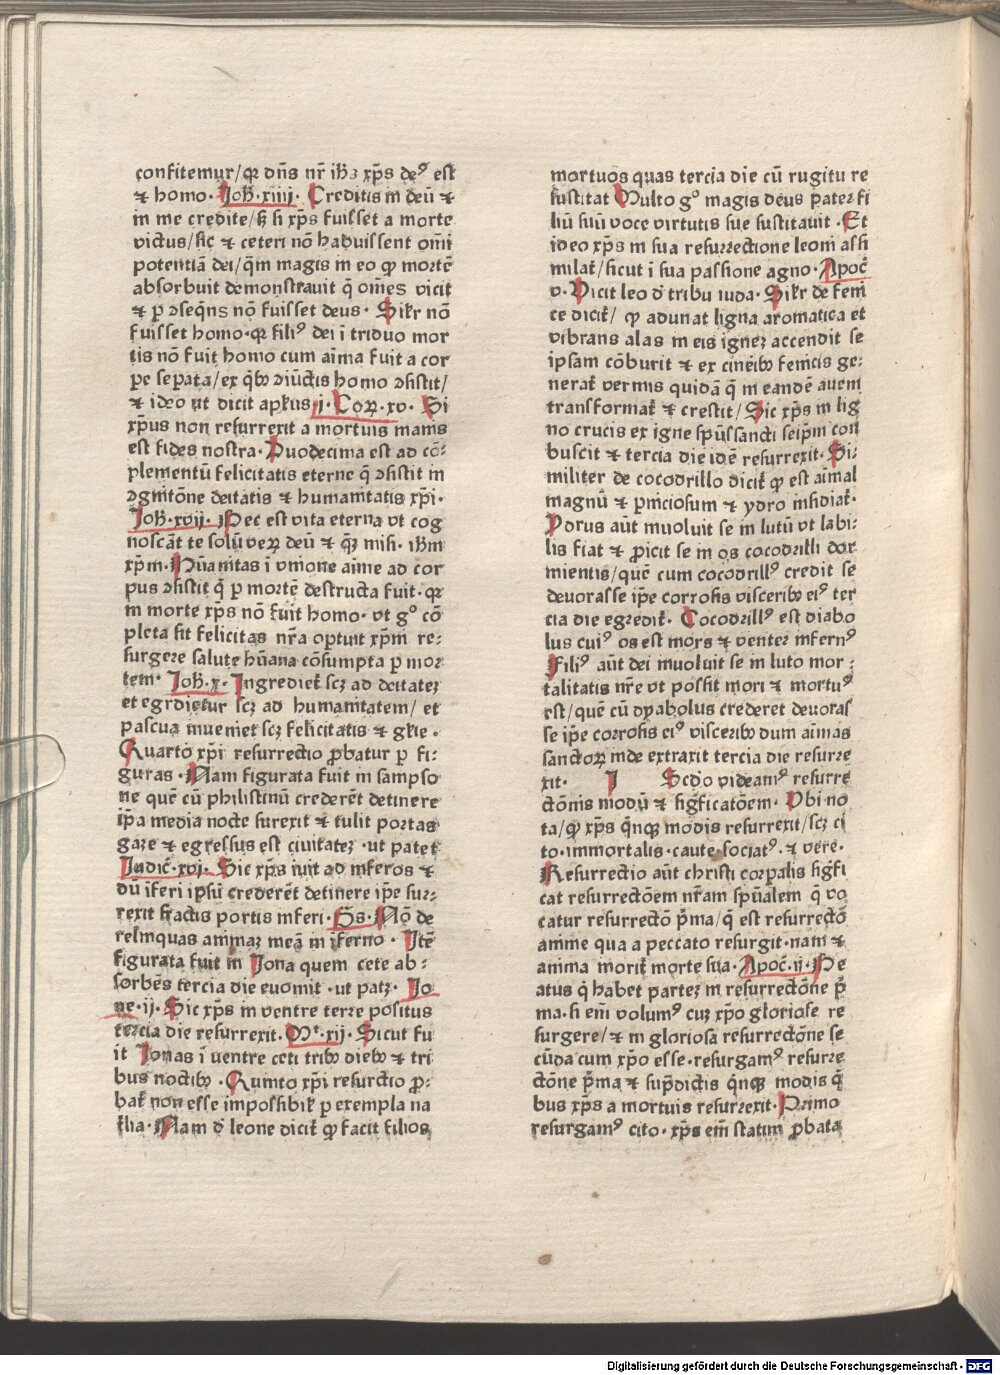 confitemur/qꝛ dn̄s nr̄ ihꝫ xp̄s deꝰ est
⁊ homo · Joh̄·xiiij· Creditis in deū ⁊
in me credite/h̄ si xp̄s fuisset a morte
victus/sic ⁊ ceteri nō habuissent om̄i
potentiā dei/q̄m magis in eo qꝙ mortē
absorbuit demonstrauit q̄ om̄es vicit
⁊ ꝑ ɔseq̄ns nō fuisset deus · Sil̄r nō
fuisset homo·qꝛ filiꝰ dei ī triduo mor
tis nō fuit homo cum aīma fuit a cor
pe sepata/ex q̄bꝫ ɔiūctis homo ɔsistit/
⁊ ideo ut dicit apl̄us i· Coꝝ·xv· Si
xp̄us non resurrexit a mortuis manis
est fides nostra· Duodecima est ad cō⸗
plementū felicitatis eterne q̄ ɔsistit in
ɔgnitōne deitatis ⁊ humanitatis xp̄i·
Joh̄·xvij· Hec est vita eterna vt cog
noscāt te solū veꝝ deū ⁊ q̄ꝫ misi· ihm̄
xp̄m· Hūanitas ī vnione aīme ad cor
pus ɔsistit q̄ ꝑ mortē destructa fuit·qꝛ
in morte xp̄s nō fuit homo· vt g° cō
pleta sit felicitas nr̄a optuit xp̄m re⸗
surgere salute hūana cōsumpta ꝑ mor
tem· Joh̄·x· Ingrediet̄ scꝫ ad deitateꝫ
et egrdietur scꝫ ad humanitatem/ et
pascua inueniet scꝫ felicitatis ⁊ gl̄ie ·
Quarto xp̄i resurrectio ꝓbatur ꝑ fi⸗
guras · Nam figurata fuit in sampso
ne quē cū philistinū crederēt detinere
ip̄a media nocte surexit ⁊ tulit portas
gaze ⁊ egressus est ciuitateꝫ ·ut patet
Judic̄·xvi· Sic xp̄s iuit ad inferos ⁊
dū īferi ip̄sū crederēt detinere ip̄e sur⸗
rexit fractis portis inferi· Ps̄· Nō de
relinquas animaꝫ meā in īferno · Itē
figurata fuit in Jona quem cete ab⸗
sorbēs tercia die euomit ·ut patꝫ· Jo
ne·ij· Sic xp̄s in ventre terre positus
tercia die resurrexit· Mᵗ·xij· Sicut fu
it Jonas ī uentre ceti tribꝫ diebꝫ ⁊ tri
bus noctibꝫ · Quinto xp̄i resurctio ꝓ⸗
bat̄ non esse impossibil̄ ꝑ exempla na
t̄lia· Nam d̄ leone dicit̄ qꝙ facit filios
mortuos quas tercia die cū rugitu re
suscitat Multo g° magis deus pater fi
liū suū voce virtutis sue suscitauit · Et
ideo xp̄s in sua resurrectione leoni assi
milat̄/sicut ī sua passione agno· Apoc̄
v· Vicit leo d̄ tribu iuda· Sil̄r de feni
ce dicit̄/ qꝙ adunat ligna aromatica et
vibrans alas in eis igneꝫ accendit se
ipsam cōburit ⁊ ex cineribꝫ fenicis ge⸗
nerat̄ vermis quidā q̄ in eandē auem
transformat̄ ⁊ crescit/ Sic xp̄s in lig
no crucis ex igne sp̄ūssancti seip̄m con
buscit ⁊ tercia die idē resurrexit· Si⸗
militer de cocodrillo dicit̄ qꝙ est aīmal
magnū ⁊ pniciosum ⁊ ydro insidiat̄·
Ydrus aūt inuoluit se in lutū vt labi⸗
lis fiat ⁊ ꝓicit se in os cocodrilli dor
mientis/quē cum cocodrillꝰ credit se
deuorasse ip̄e corrosis visceribꝫ eiꝰ ter
cia die egredit̄· Cocodrillꝰ est diabo
lus cuiꝰ os est mors ⁊ venter infernꝰ
Filiꝰ aūt dei inuoluit se in luto mor⸗
talitatis nr̄e vt possit mori ⁊ mortuꝰ
est/quē cū dyabolus crederet deuoras
se ip̄e corrosis eiꝰ visceribꝫ dum aīmas
sanctoꝝ inde extraxit tercia die resurre
xit· J Scdo videamꝰ resurre
ctōnis modū ⁊ sigficatōem· Vbi no
ta/qꝙ xp̄s q̄nqꝫ modis resurrexit/scꝫ ci
to·immortalis·caute·sociatꝰ·⁊ vere·
Resurrectio aūt christi corꝑalis sigfi
cat resurrectōem nr̄am spūalem q̄ vo
catur resurrectō p̄ma/q̄ est resurrectō
anime qua a peccato resurgit·nam ⁊
anima morit̄ morte sua· Apoc̄·ij· Be
atus q̄ habet parteꝫ in resurrectōne p̄
ma·si em̄ volumꝰ cuꝫ xp̄o gloriose re
surgere/⁊ in gloriosa resurrectōne se
cūda cum xp̄o esse·resurgamꝰ resurre
ctōne p̄ma ⁊ sup̄dictis q̄nqꝫ modis q̄
bus xp̄s a mortuis resurrexit· Primo
resurgamꝰ cito·xp̄s em̄ statim ꝓbata
Digitalisierung gefördert durch die Deutsche Forschungsgemeinschaft · DFG